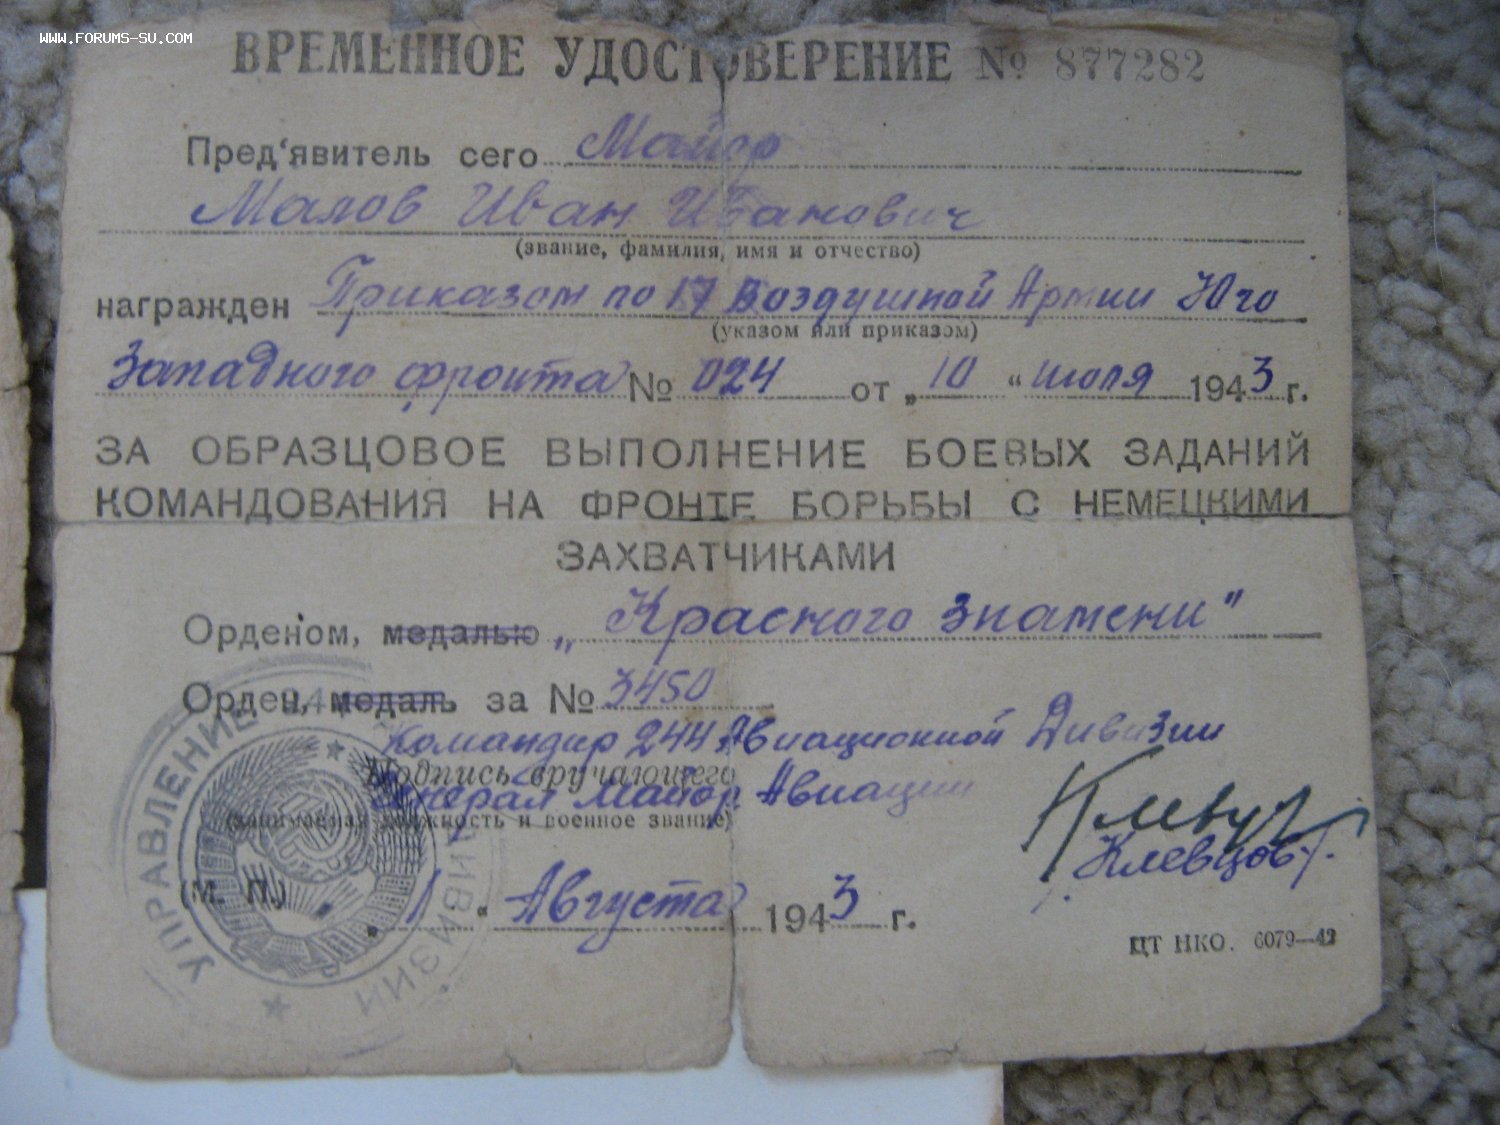 WWW.FORUMS-SU.COM
ВРЕМЕННОЕ УДОСТОВЕРЕНИЕ № 877282
Пред'явитель сего Майор
Малов Иван Иванович
(звание, фамилия, имя и отчество)
награжден Приказом по 17 Воздушной Армии Юго
(указом или приказом)
Западного фронта № 024 от „10" июля 1943 г.
ЗА ОБРАЗЦОВОЕ ВЫПОЛНЕНИЕ БОЕВЫХ ЗАДАНИЙ
КОМАНДОВАНИЯ НА ФРОНТЕ БОРЬБЫ С НЕМЕЦКИМИ
ЗАХВАТЧИКАМИ
Орденом, медалью „Красного знамени"
Орден, медаль за № 3450
Командир 244 Авиационной Дивизии
Подпись вручающего
Генерал майор Авиации
(занимаемая должность и военное звание)
Клевцов
(М. П.) „1" Августа 1943 г.
ЦТ НКО. 6079—42
УПРАВЛЕНИЕ 244 ДИВИЗИИ